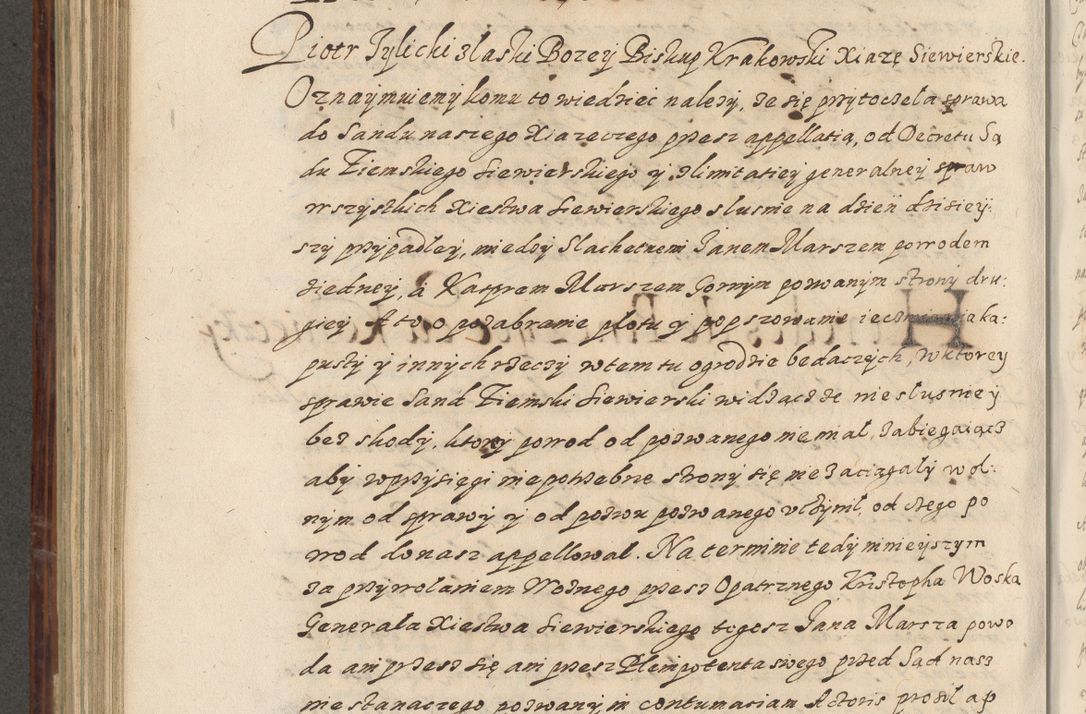 Piotr Tylicki złaski Bozey Biskup Krakowski Xiazę Siewierskie.
Oznaymuiemy komu to wiedziec nalezy, ze się przytoczeła sprawa
do Sandu nasiego Xiazeczego przesz appellatią, od Decretu Są
du Ziemskiego Siewierskiego y zlimitatiey generalney spraw
wszystkich Xiestwa Siewierskiego slusnie na dzień dzisiey:
szy przypadłey, miedzy Slachetnem Janem Marszem powodem
ziedney, a Kasprem Marszem Gornym pozwanym strony dru:
giey A to o pozabranie płotu y popszowanie ka:
pusty y innych rzeczy wtem tu ogrodzie bedaczych, wktorey
sprawie Sand Ziemski Siewierski widząc ze nieslusnie y
bez skody, ktory powod od pozwanego nie miał, zabiegaiącz
aby wprzysięgi niepotrzebne strony się nie zaciągały wol:
nym od sprawy y od pozwu pozwanego vczynił, od czego po
wod donasz appellował. Na terminie tedy ninieyszym
za przywołaniem Woznego przesz Opatrznego Kristopha Woska
Generała Xiestwa Siewierskiego tegosz Jana Marsza powo
da ani przesz się ani przesz Plenipotenta swego przed Sąd nasz
niestanaczego pozwany in contumaciam Actoris prosił ap